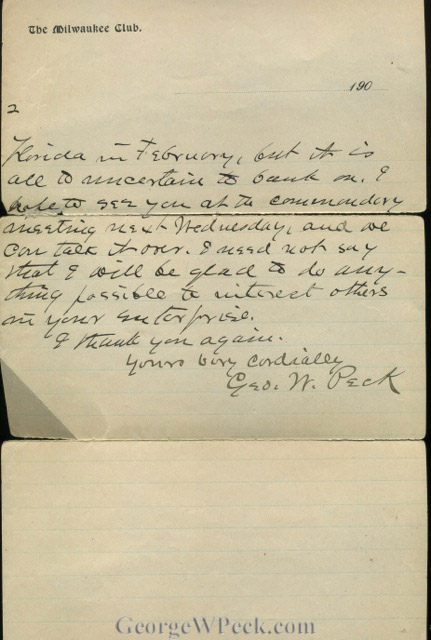 The Milwaukee Club.
190
2
Florida in February, but it is
all to uncertain to bank on. I
hate to see you at the commandery
meeting next Wednesday, and we
can talk it over. I need not say
that I will be glad to do any-
thing possible to interest others
in your enterprise.
I thank you again.
Yours very cordially
Geo. W. Peck
GeorgeWPeck.com